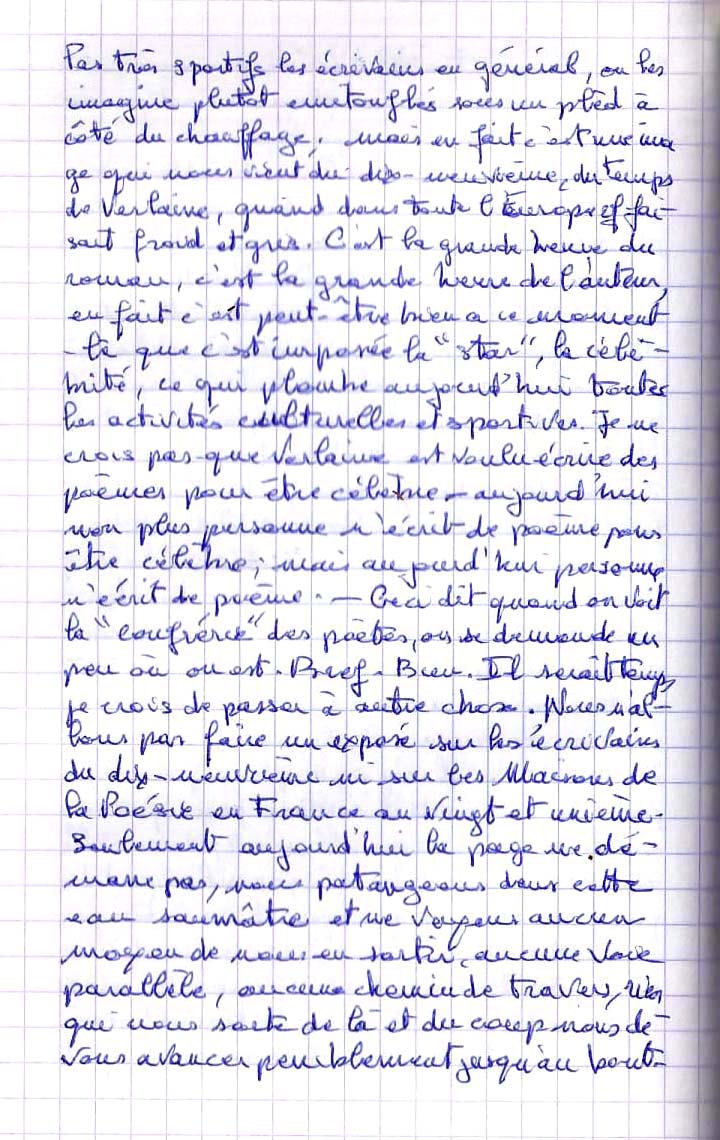 Pas très sportifs les écrivains en général, on les
imagine plutôt emitouflés sous un plèd à
côté du chauffage. Mais en fait c'est une ima
ge qui nous vient du dix-neuvième, du temps
de Verlaine, quand dans toute l'Europe il fai-
sait froid et gris. C'est la grande heure du
roman, c'est la grande heure de l'auteur,
en fait c'est peut-être bien a ce moment
-là que c'est imposée la "star", la célé-
brité, ce qui plombe aujourd'hui toutes
les activités culturelles et sportives. Je ne
crois pas que Verlaine ait voulu écrire des
poèmes pour être célèbre - aujourd'hui
non plus personne n'écrit de poème pour
être célèbre; mais aujourd'hui personne
n'écrit de poème. — Ceci dit quand on voit
la "confrérie" des poètes, on se demande un
peu où on est. Bref - Bien. Il serait temps
je crois de passer à autre chose. Nous n'al-
lons pas faire un exposé sur les écrivains
du dix-neuvième ni sur les Macrons de
la Poésie en France au vingt et unième.
Seulement aujourd'hui la page ne dé-
marre pas, nous pataugeons dans cette
eau saumâtre et ne voyons aucun
moyen de nous en sortir, aucune voie
parallèle, aucun chemin de travers, rien
qui nous sorte de là et du coup nous de-
vons avancer péniblement jusqu'au bout-